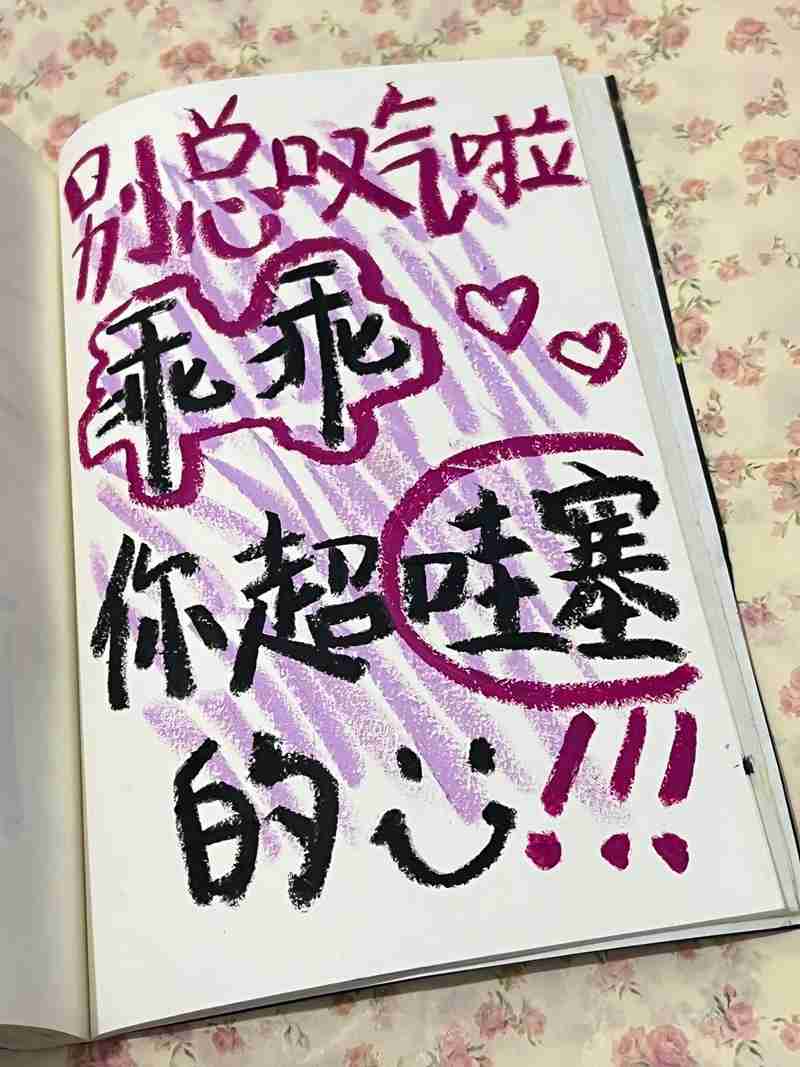 别总叹气啦
乖乖
你超哇塞
的!!!